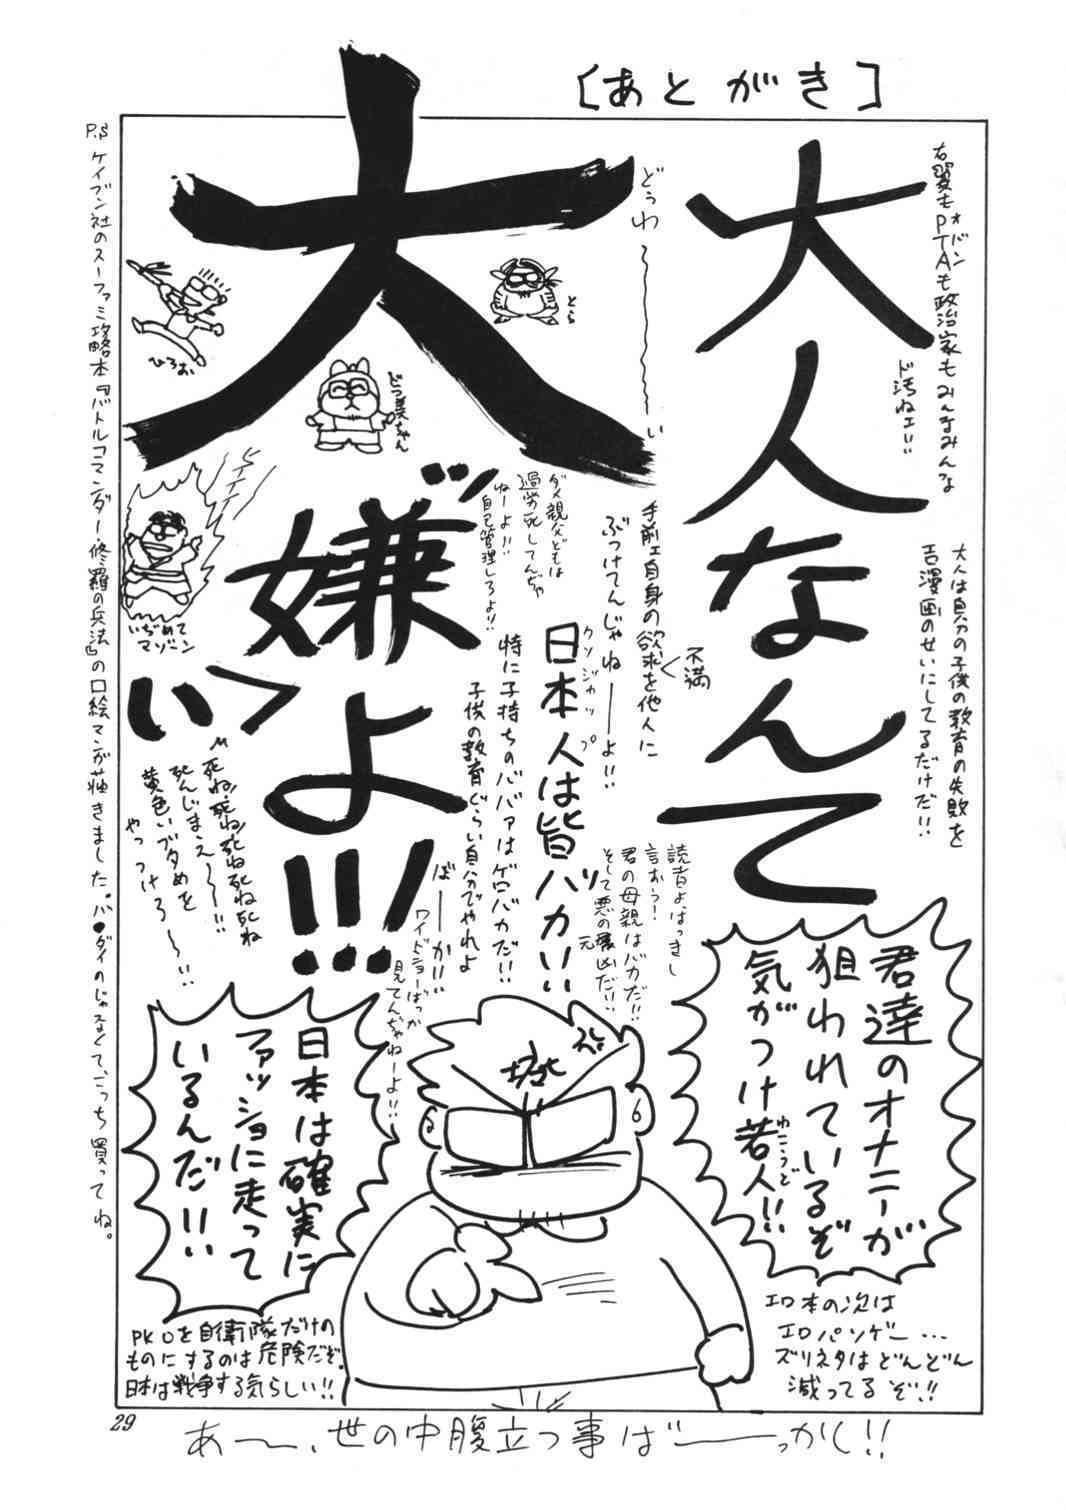 [あとがき]
右翼もPTAも政治家もみんなみんな
オバン
ド汚ねェ!!
大人なんて
大人は自分の子供の教育の失敗を
エロ漫画のせいにしてるだけだ!!
どぅわ〜〜〜い
大
嫌いッ
よ!!!
とら
どつ美ちゃん
ひろお
いぢめて
マゾーン
手前ェ自身の欲求を他人に
不満
ぶつけてんじゃねーーよ!!
ダメ親父どもは
過労死してんぢゃ
ねーよ!!
自己管理しろよ!!
日本人は皆バカ!!
クソジャップ
特に子持ちのババァはゲロバカだ!!
子供の教育ぐらい自分でやれよ
ばーーか!!
ワイドショーばっか
見てんぢゃねーよ!!
読者よ、はっきし
言おう!
君の母親はバカだ!!
そして悪の元凶だ!!
死ね!死ね!死ね死ね死ね
死んじまえ〜〜!!
黄色いブタめを
やっつけろ〜〜!!
君達のオナニーが
狙われているぞ
気がつけ若人!!
わこうど
日本は確実に
ファッショに走って
いるんだ!!
エロ本の次は
エロパソゲー…
ズリネタはどんどん
減ってるぞ!!
PKOを自衛隊だけの
ものにするのは危険だぞ。
日本は戦争する気らしい!!
P.S ケイブン社のスーファミ攻略本『バトルコマンダー・修羅の兵法』の口絵マンガ描きました。バ●ダイのじゃなくて、こっち買ってね。
29
あ〜〜、世の中腹立つ事ば〜〜っかし!!